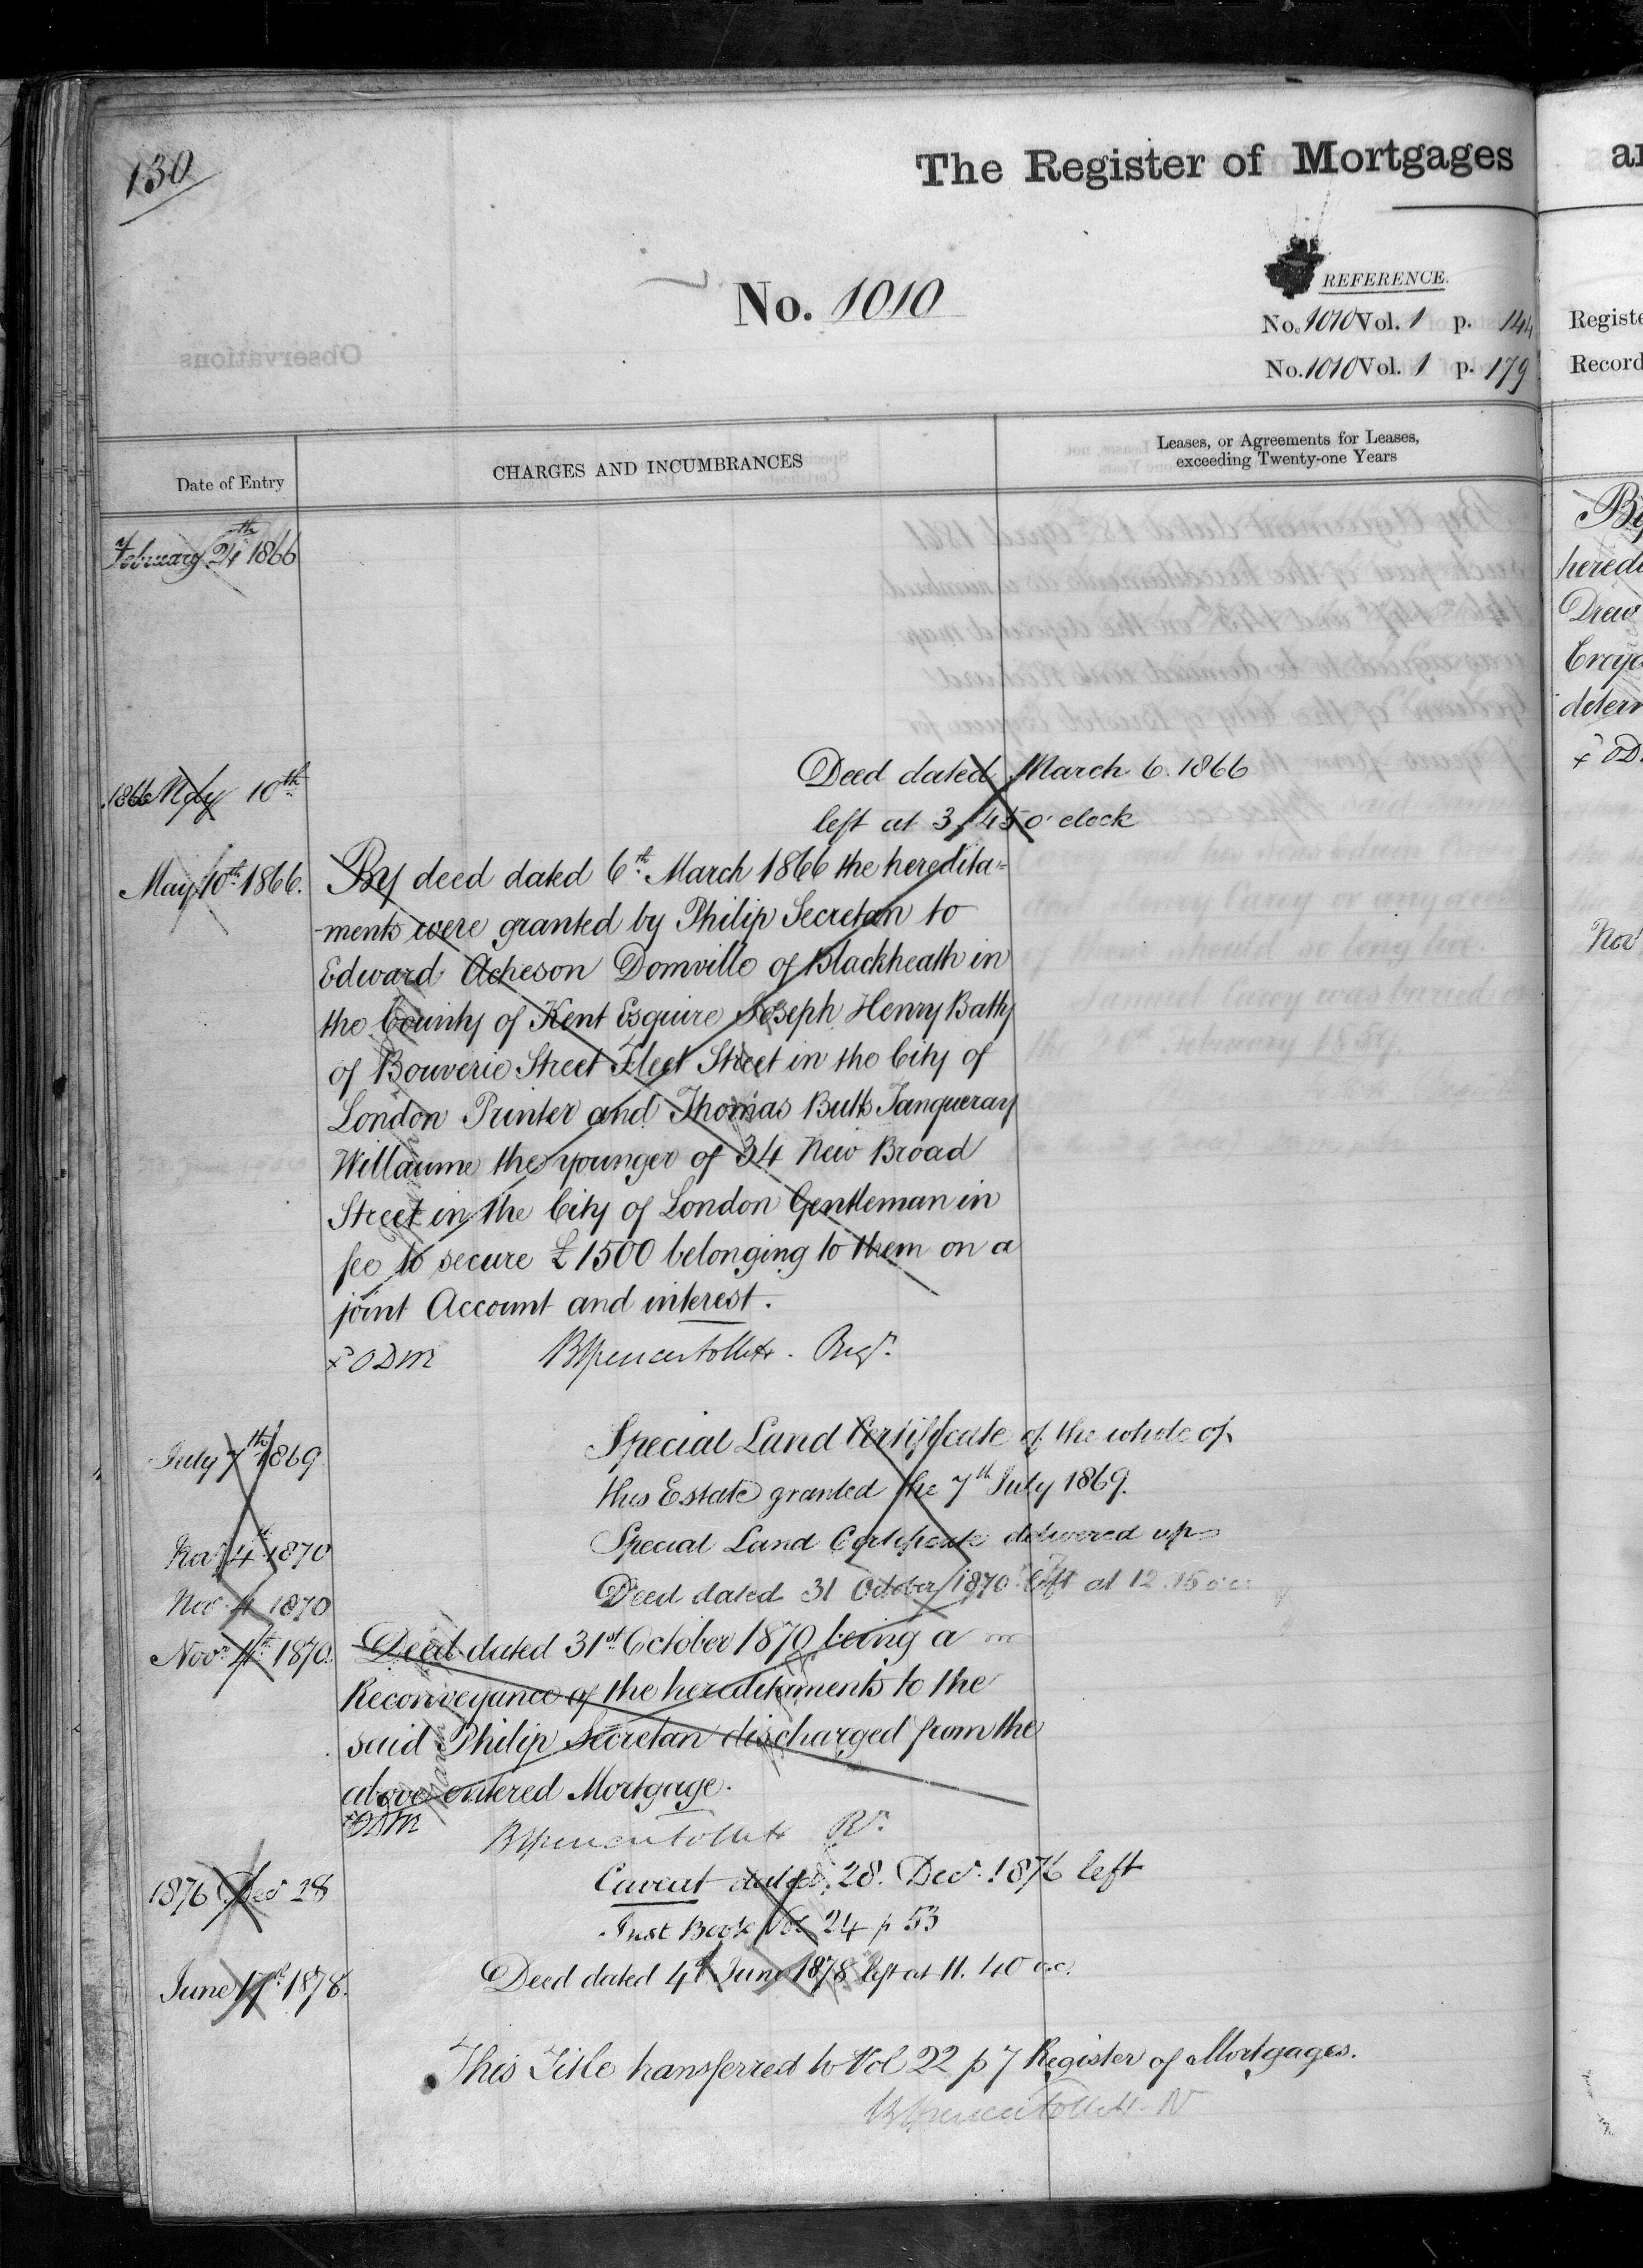 130
The Register of Mortgages
No. 1010
REFERENCE.
No. 1010 Vol. 1 p. 144
No. 1010 Vol. 1 p. 179
Date of Entry
CHARGES AND INCUMBRANCES
Leases, or Agreements for Leases,
exceeding Twenty-one Years
February 24th 1866
1866 May 10th
Deed dated March 6. 1866
left at 3.45 o'clock
May 10th 1866.
By deed dated 6th March 1866 the heredita=
-ments were granted by Philip Secretan to
Edward Acheson Domville of Blackheath in
the County of Kent Esquire Joseph Henry Batty
of Bouverie Street Fleet Street in the City of
London Printer and Thomas Butts Tanqueray
Willaume the younger of 34 New Broad
Street in the City of London Gentleman in
fee to secure £1500 belonging to them on a
joint Account and interest.
ODM
July 7th 1869
Special Land Certificate of the whole of
this Estate granted the 7th July 1869.
Nov 4th 1870
Special Land Certificate delivered up
Nov 4 1870
Deed dated 31 October 1870 left at 12.15 o.c.
Novr 4th 1870.
Deed dated 31st October 1870 being a
Reconveyance of the hereditaments to the
said Philip Secretan discharged from the
above entered Mortgage.
ODM
1876 Dec 28
Caveat dated 28. Decr. 1876 left
Inst Book Vol 24 p 53
June 17th 1878.
Deed dated 4th June 1878 left at 11.40 o.c.
This Title transferred to Vol 22 p 7 Register of Mortgages.
Registe
Record
heredi
Drew
Croyd
deter
Nov